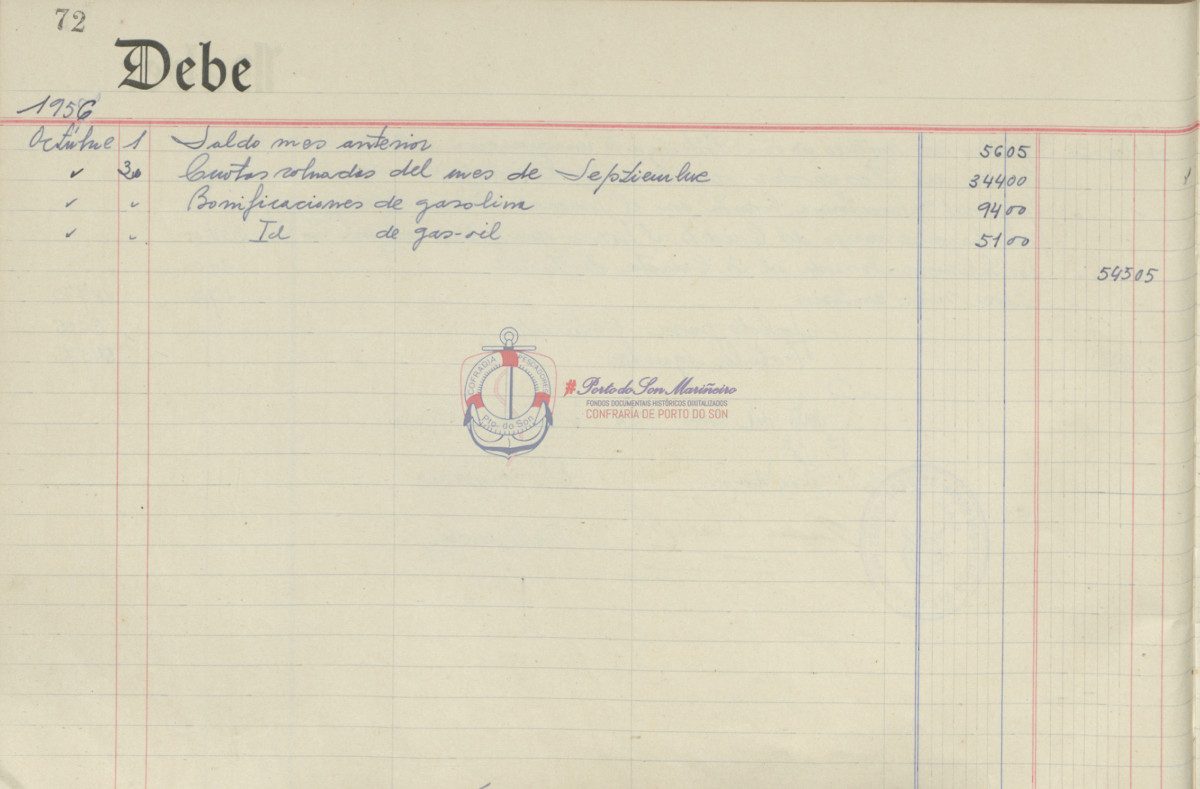 72
Debe
1956
Octubre 1 Saldo mes anterior 56 05
✓ 30 Cuotas cobradas del mes de Septiembre 344 00
✓ " Bonificaciones de gasolina 94 00
✓ " Id de gas-oil 51 00
545 05
COFRADIA PESCADORES
Pto. do Son
#Porto do Son Mariñeiro
FONDOS DOCUMENTAIS HISTÓRICOS DIXITALIZADOS
CONFRARÍA DE PORTO DO SON